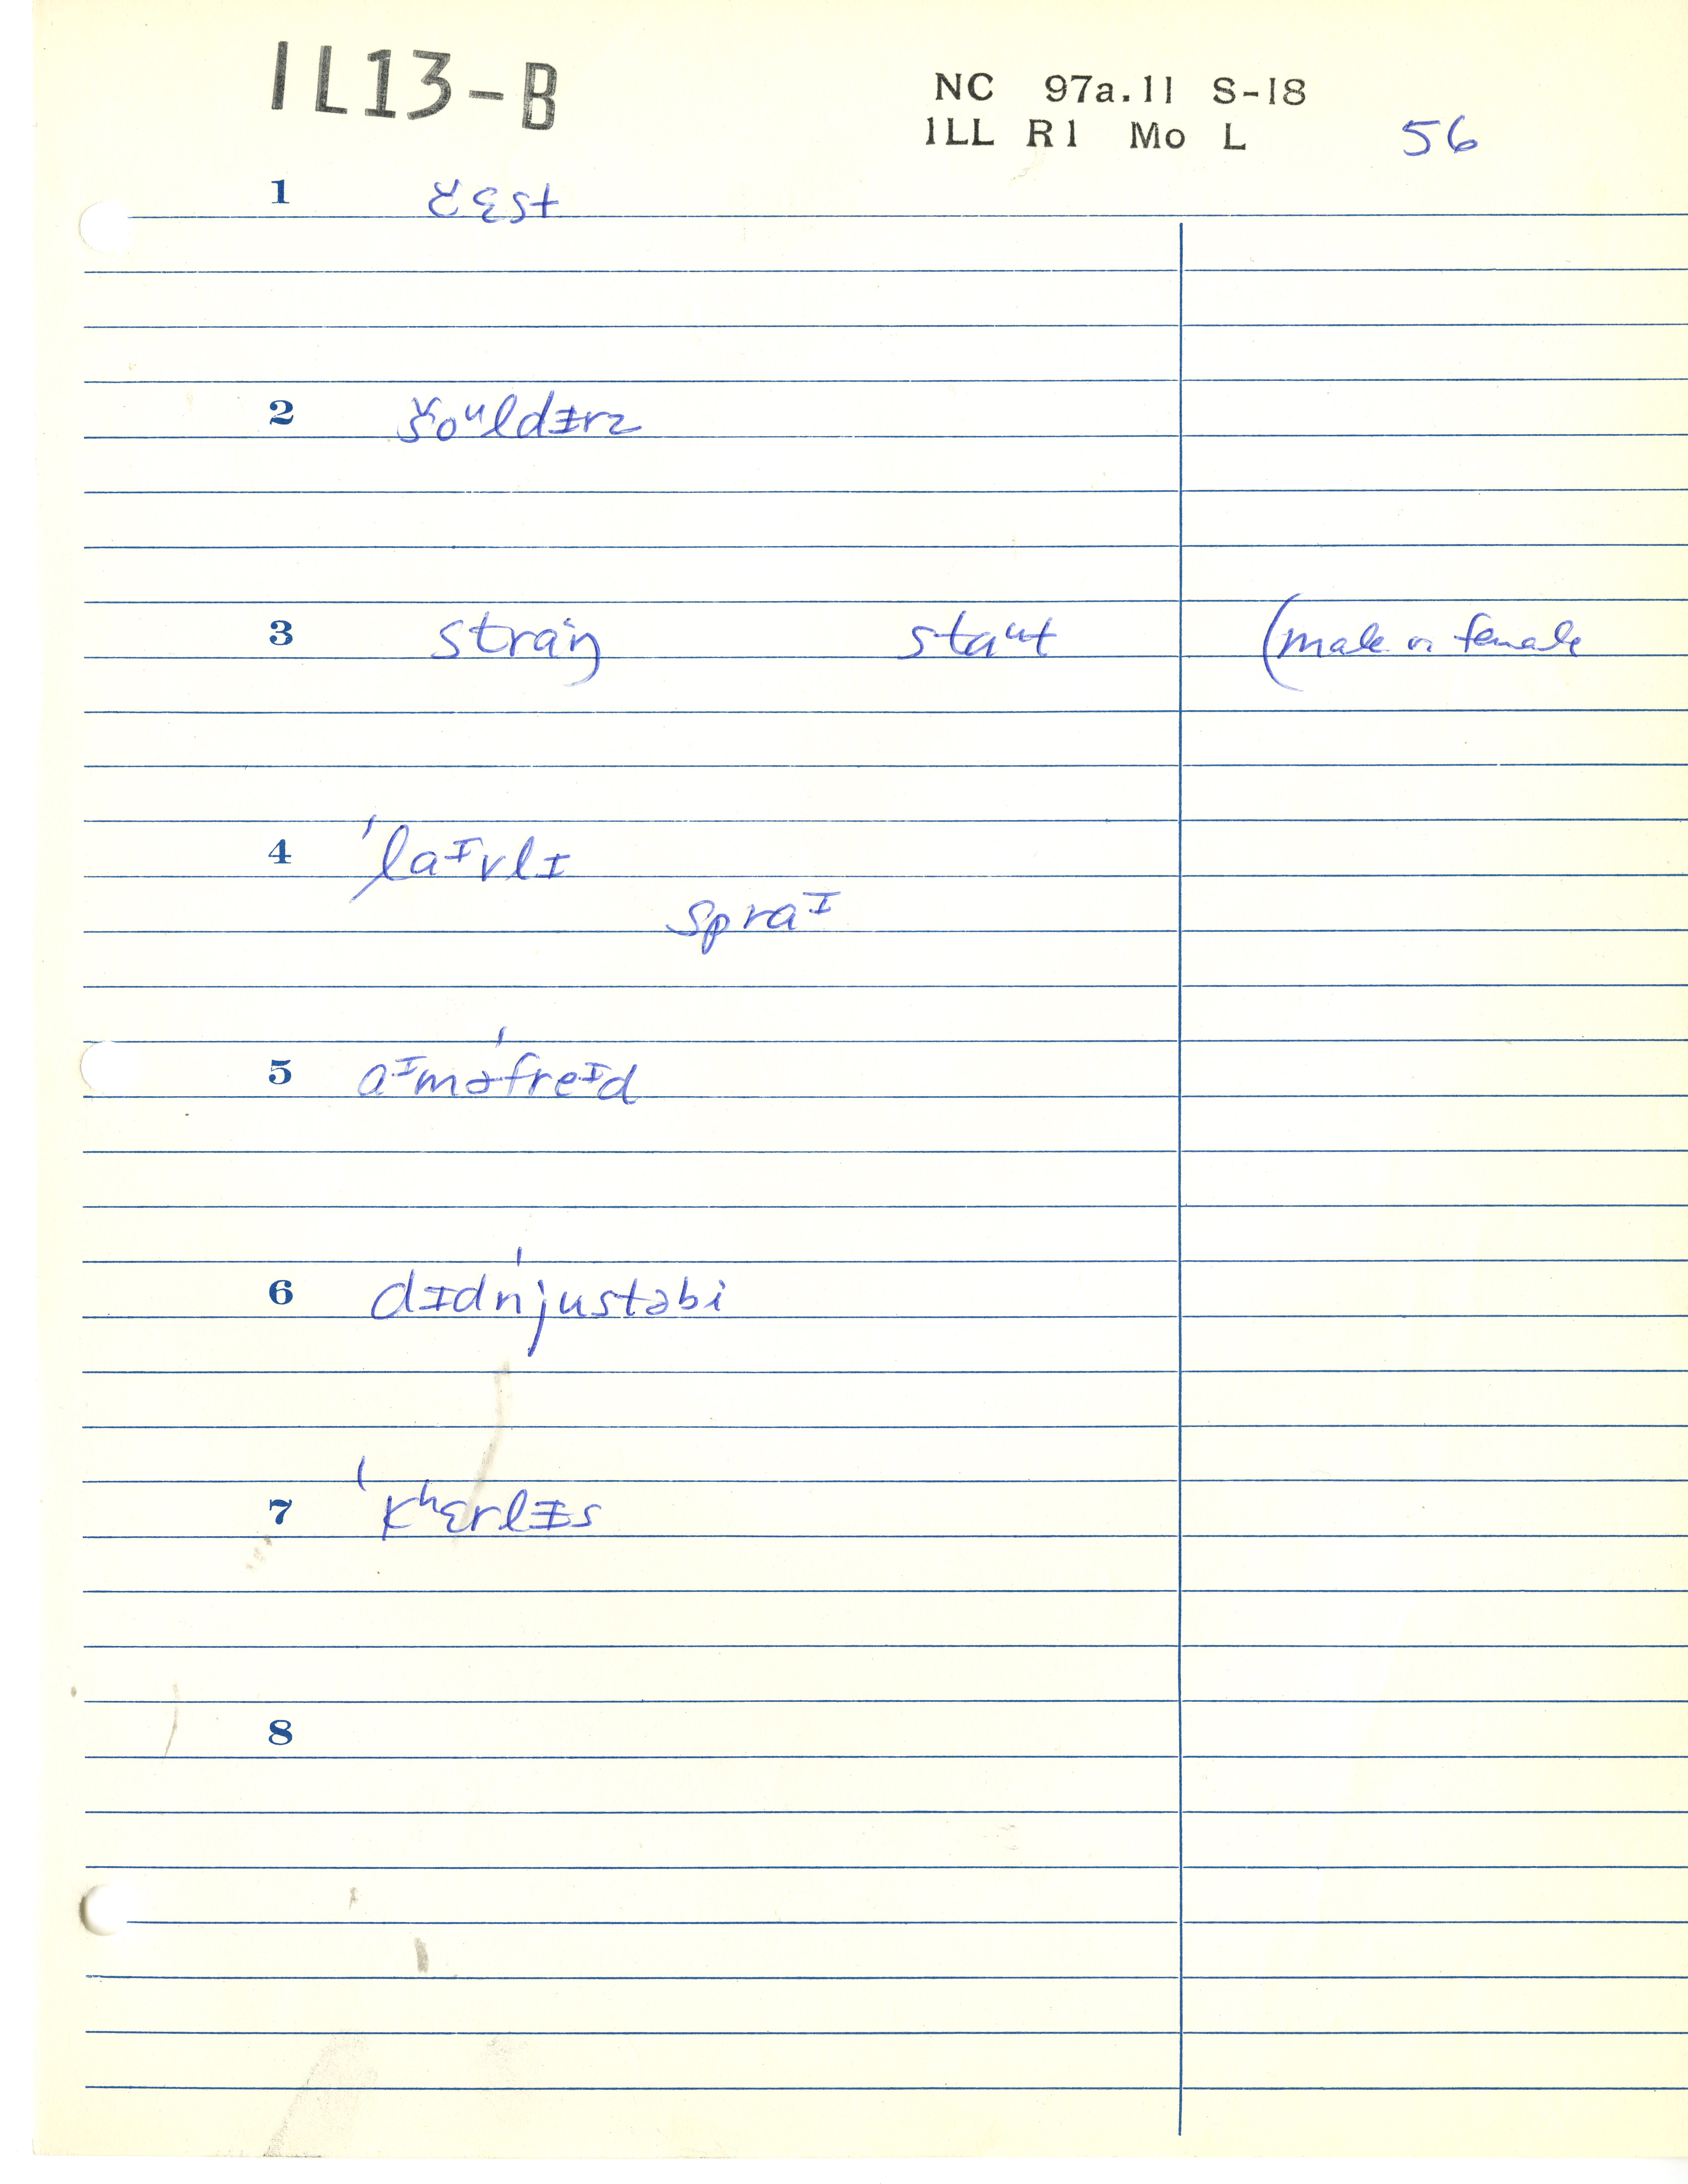 IL13-B
NC 97a.11 S-18
ILL R1 Mo L 56
1 č̌ɛst
2 šoᵘldɨrz
3 straŋ staᵘt (male or female
4 ˈlaᶦvlɪ
spraᶦ
5 aᶦməˈfreᶦd
6 dɪdn̩ˈjustəbi
7 ˈkʰɛrlɨs
8